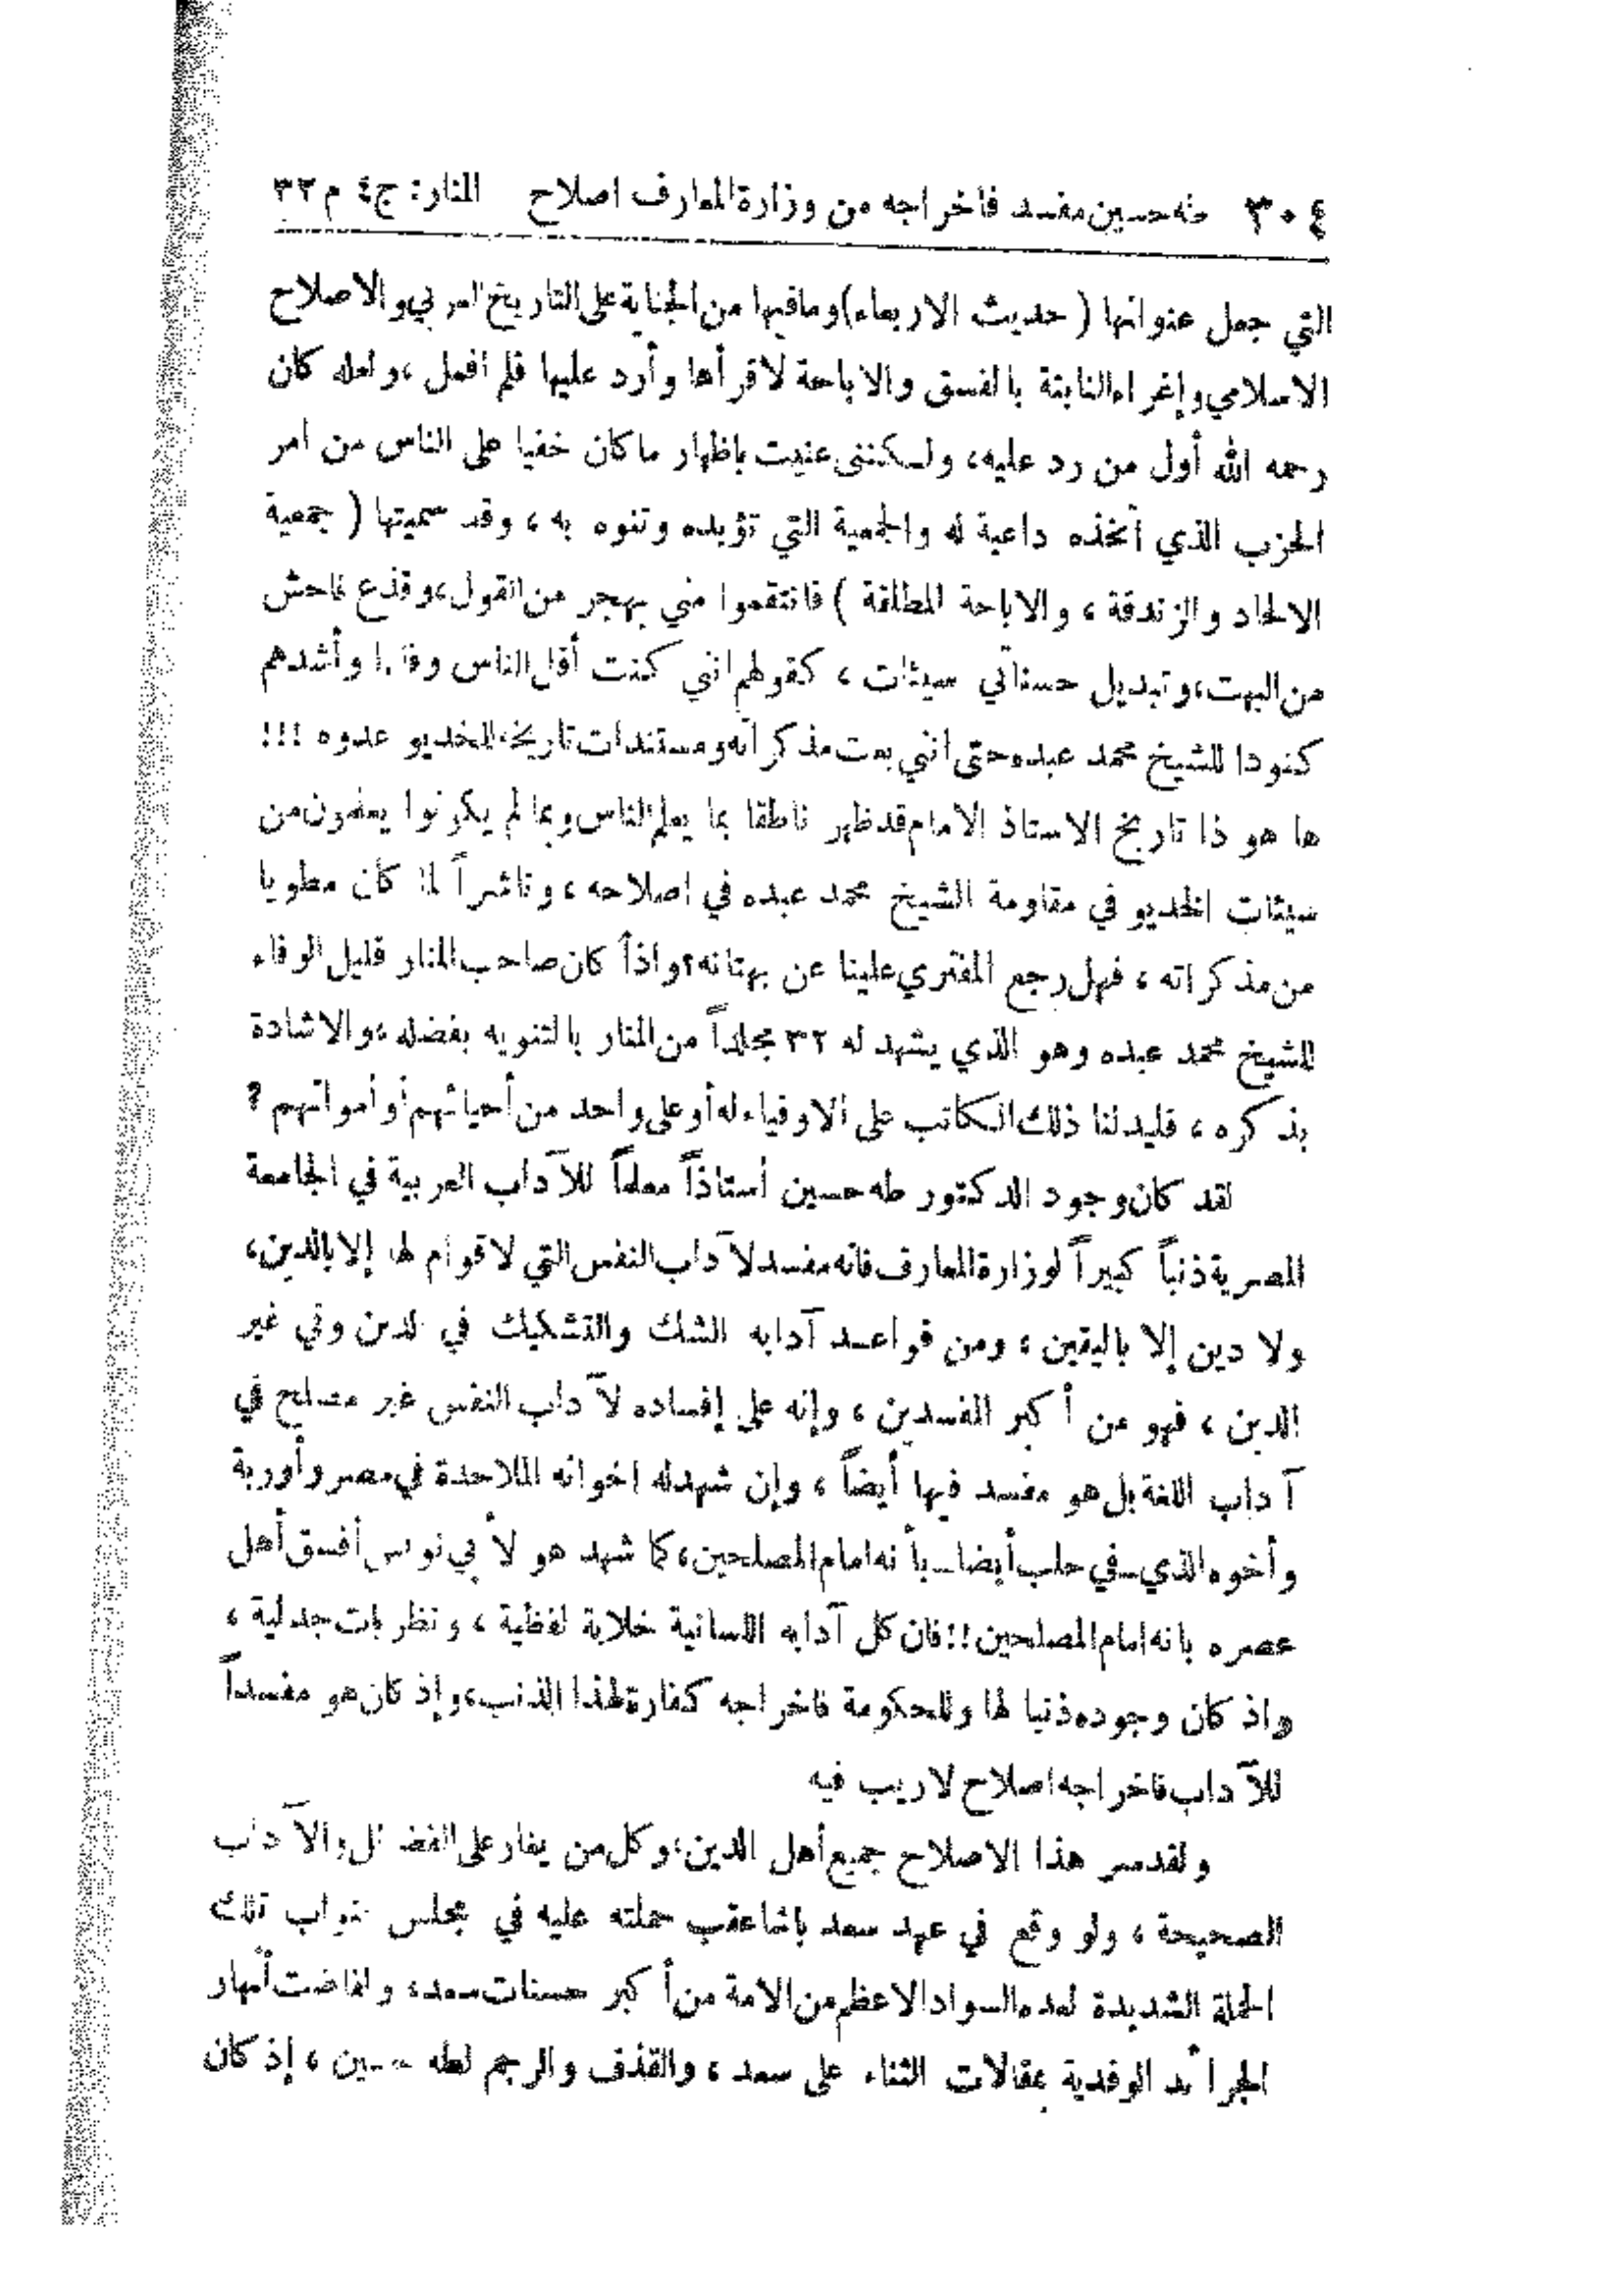 ٣٠٤ طه حسين مفسد فاخراجه من وزارة المعارف اصلاح المنار: ج٤ م٣٢
التي جعل عنوانها ( حديث الاربعاء) وما فيها من الجناية على التاريخ العربي والاصلاح
الاسلامي وإغراء النابتة بالفسق والاباحة لاقرأها وأرد عليها فلم افعل ، ولعله كان
رحمه الله أول من رد عليه، ولكنني عنيت باظهار ما كان خفيا على الناس من امر
الحزب الذي اتخذه داعية له والجمعية التي تؤيده وتنوه به ، وقد سميتها ( جمعية
الالحاد والزندقة ، والاباحة المطلقة ) فانتقموا مني بهجر من القول، وقذع فاحش
من البهت، وتبديل حسناتي سيئات ، كقولهم انني كنت أقل الناس وفاءا وأشدهم
كنودا للشيخ محمد عبده حتى انني بعت مذكراته ومستندات تاريخه للخديو عدوه !!!
ها هو ذا تاريخ الاستاذ الامام قد ظهر ناطقا بما يعلم الناس وبما لم يكونوا يعلمون من
سيئات الخديو في مقاومة الشيخ محمد عبده في اصلاحه ، وناشراً لما كان مطويا
من مذكراته ، فهل رجع المفتري علينا عن بهتانه؟ واذاً كان صاحب المنار قليل الوفاء
للشيخ محمد عبده وهو الذي يشهد له ٣٢ مجلداً من المنار بالتنويه بفضله ، والاشادة
بذكره ، فليدلنا ذلك الكاتب على الاوفياء له أو على واحد من أحيائهم أو أمواتهم ؟
لقد كان وجود الدكتور طه حسين أستاذاً معلماً للآداب العربية في الجامعة
المصرية ذنباً كبيراً لوزارة المعارف فانه مفسد لآداب النفس التي لا قوام لها إلا بالدين،
ولا دين إلا باليقين ، ومن قواعد آدابه الشك والتشكيك في الدين وفي غير
الدين ، فهو من أكبر المفسدين ، وإنه على إفساده لآداب النفس غير مصلح في
آداب اللغة بل هو مفسد فيها أيضاً ، وإن شهد له اخوانه الملاحدة في مصر وأوربة
وأخوه الذي ــ في حلب أيضا ــ بأنه امام المصلحين، كما شهد هو لأبي نواس أفسق أهل
عصره بانه امام المصلحين!! فان كل آدابه اللسانية خلابة لفظية ، ونظريات جدلية ،
واذ كان وجوده ذنبا لها وللحكومة فاخراجه كفارة لهذا الذنب، وإذ كان هو مفسداً
للآداب فاخراجه اصلاح لاريب فيه
ولقد سر هذا الاصلاح جميع أهل الدين، وكل من يغار على الفضائل والآداب
الصحيحة ، ولو وقع في عهد سعد باشا عقب حملته عليه في مجلس النواب تلك
الحملة الشديدة لعده السواد الاعظم من الامة من أكبر حسنات سعد، ولفاضت أنهار
الجرائد الوفدية بمقالات الثناء على سعد ، والقذف والرجم لطه حسين ، إذ كان